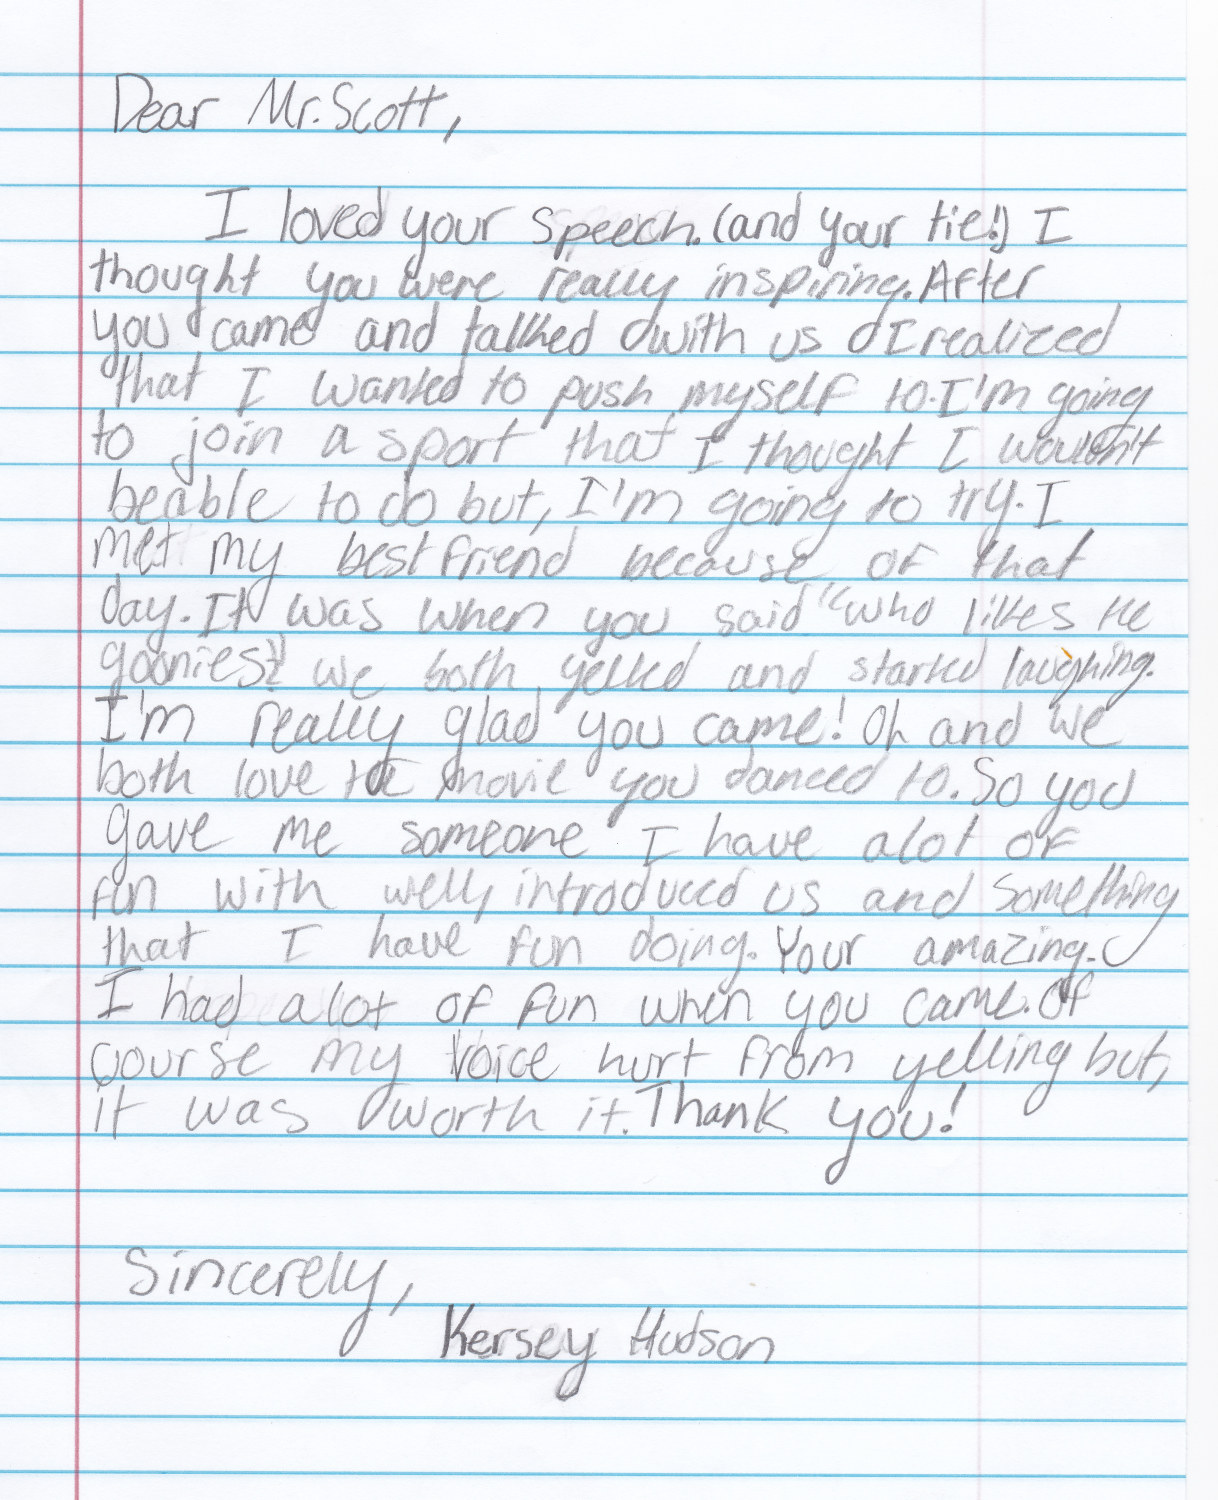 Dear Mr. Scott,
I loved your speech. (and your tie!) I
thought you were really inspiring. After
you came and talked with us I realized
that I wanted to push myself to. I'm going
to join a sport that I thought I wouldn't
beable to do but, I'm going to try. I
met my best friend because of that
day. It was when you said "who likes the
goonies?" we both yelled and started laughing.
I'm really glad you came! Oh and we
both love the movie you danced to. So you
gave me someone I have alot of
fun with well, introduced us and something
that I have fun doing. Your amazing.
I had alot of fun when you came. Of
course my voice hurt from yelling but,
it was worth it. Thank you!
Sincerely,
Kersey Hudson